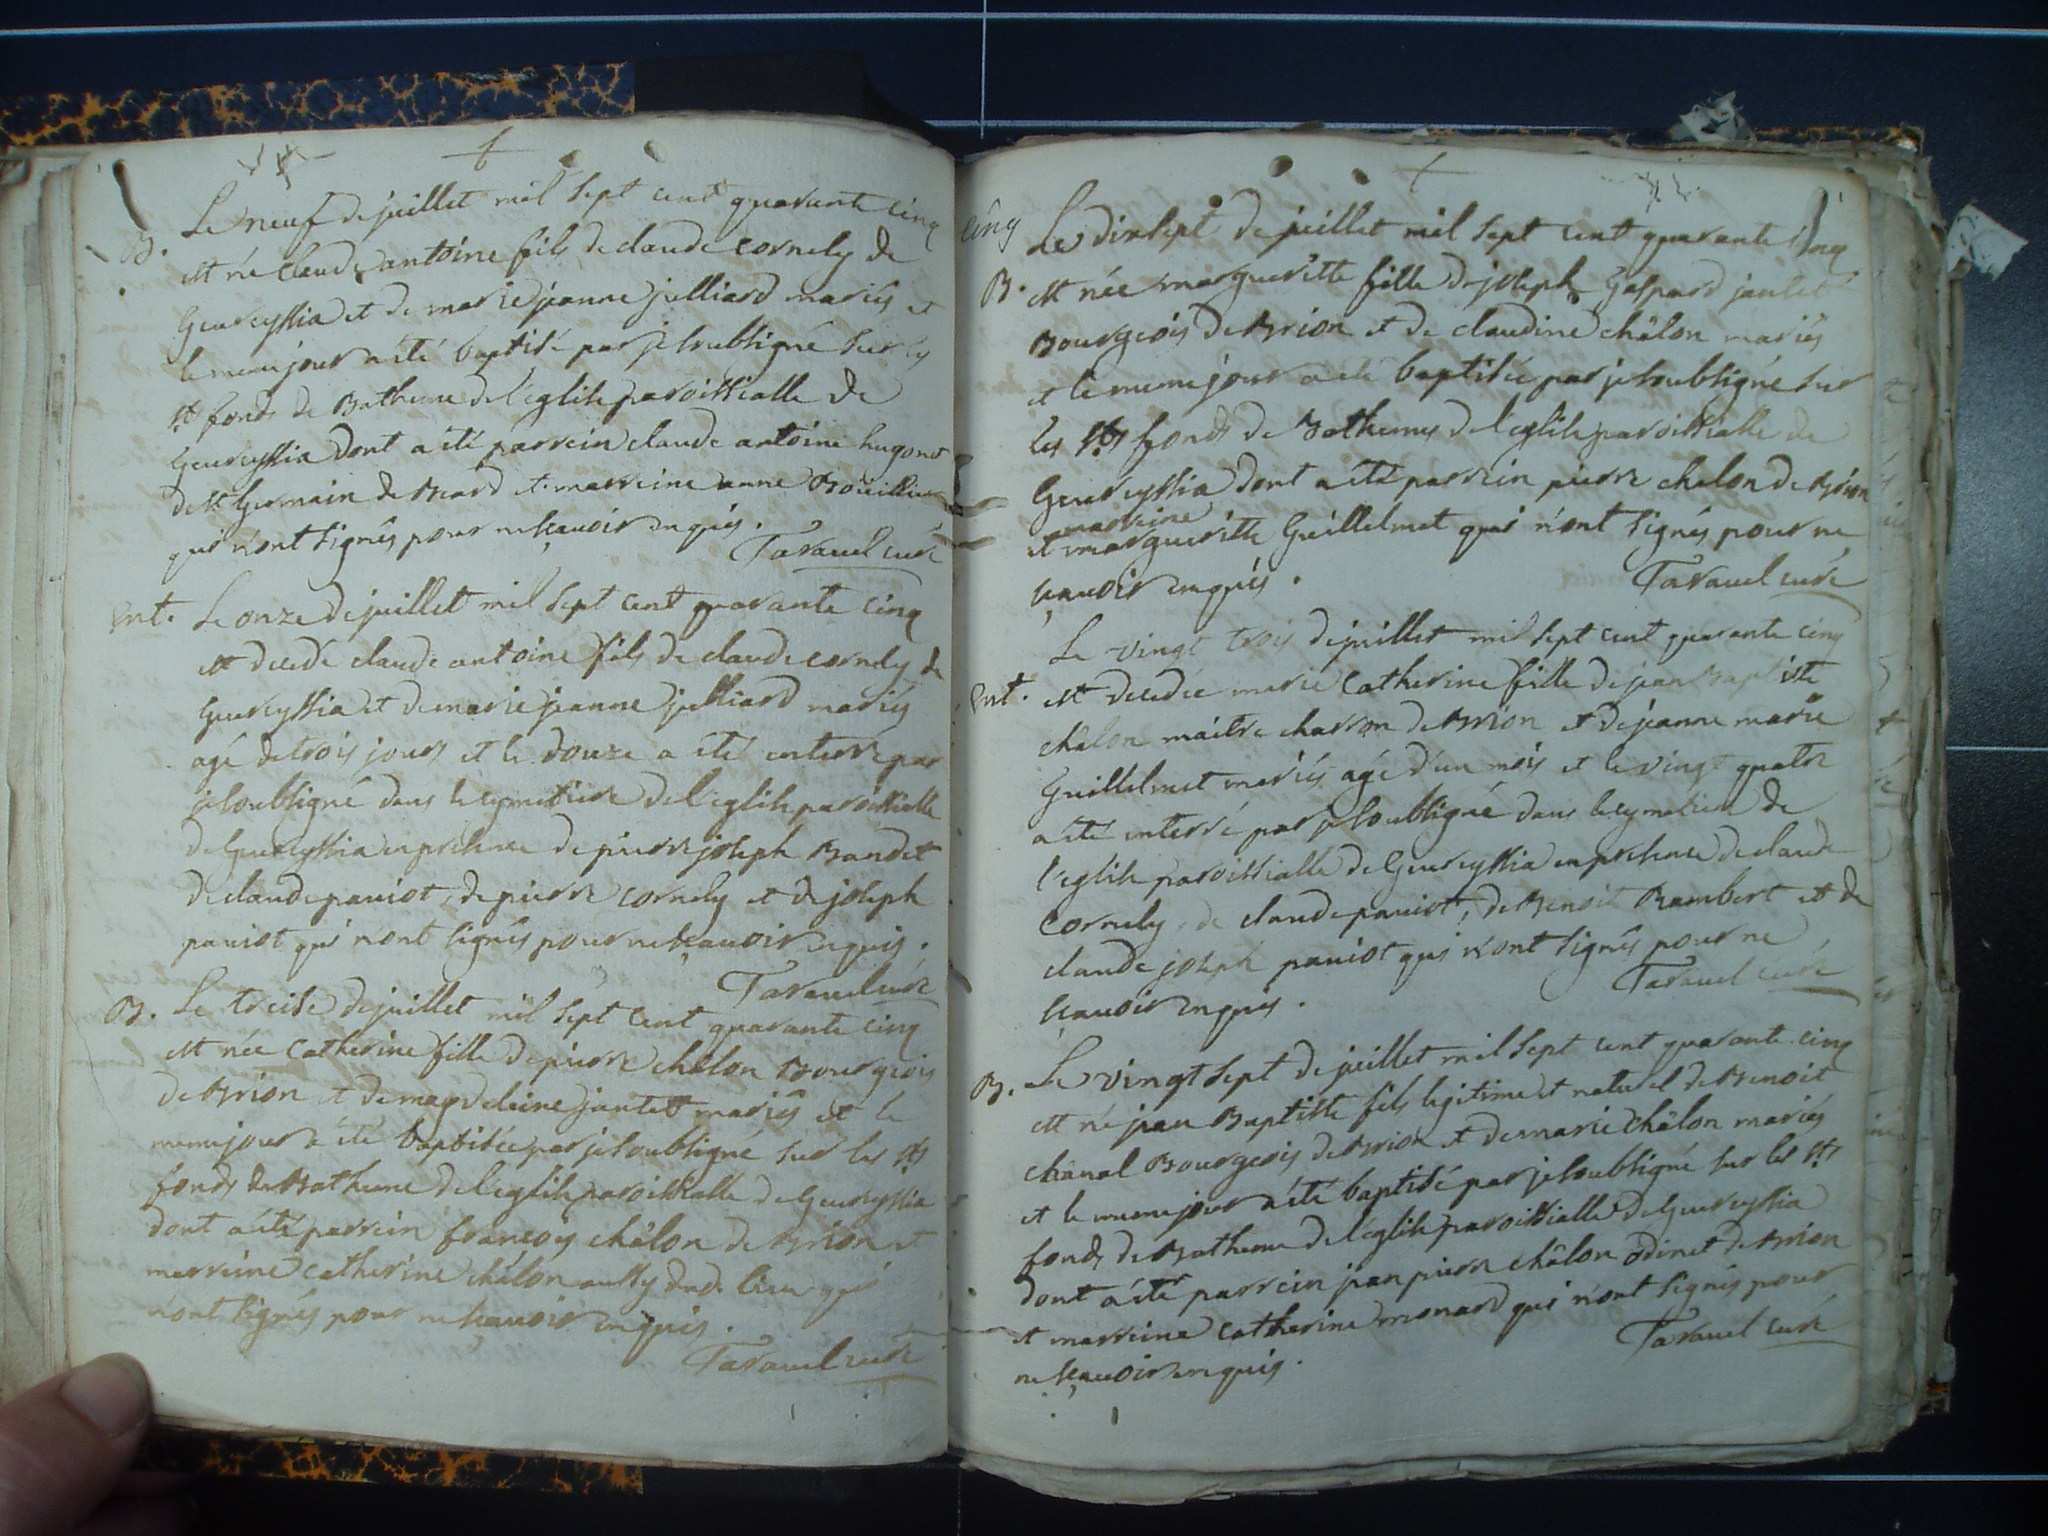 B. Le neuf de juillet mil sept cent quarante cinq
est né claude antoine fils de claude cornely de
Geureyssia et de marie jeanne julliard mariés et
le meme jour a été baptisé par je soubsigné sur les
sts fonds de Batheme de l'eglise paroissialle de
Geureyssia dont a été parrein claude antoine hugonet
de st Germain de Beard et marreine anne
qui n'ont signés pour ne sçavoir enquis.
Taravel curé
Ent. Le onze de juillet mil sept cent quarante cinq
est decedé claude antoine fils de claude cornely de
Geureyssia et de marie jeanne julliard mariés
agé de trois jours et le douze a été enterré par
je soubsigné dans le cymetiere de l'eglise paroissialle
de Geureyssia en presence de pierre joseph Bandet
de claude paviot, de pierre cornely et de joseph
paviot qui n'ont signés pour ne sçavoir enquis.
Taravel curé
B. Le treise de juillet mil sept cent quarante cinq
est née catherine fille de pierre châlon Bourgeois
de Brion et de magdeleine jantet mariés et le
meme jour a été baptisée par je soubsigné sur les sts
fonds de Batheme de l'eglise paroissialle de Geureyssia
dont a été parrein françois châlon de Brion et
marreine catherine châlon aussy dud. lieu qui
n'ont signés pour ne sçavoir enquis.
Taravel curé
cinq
Le dixsept de juillet mil sept cent quarante cinq
B. est née margueritte fille de joseph Gaspard jantet
Bourgeois de Brion et de claudine châlon mariés
et le meme jour a été baptisée par je soubsigné sur
les sts fonds de Bathemes de l'eglise paroissialle de
Geureyssia dont a été parrein pierre chalon de Brion
marreine
et margueritte Guillelmet qui n'ont signés pour ne
sçavoir enquis.
Taravel curé
Le vingt trois de juillet mil sept cent quarante cinq
Ent. est decedée marie catherine fille de jean Baptiste
châlon maitre charron de Brion et de jeanne marie
Guillelmet mariés agé d'un mois et le vingt quatre
a été enterré par je soubsigné dans le cymetiere de
l'eglise paroissialle de Geureyssia en presence de claude
cornely, de claude paviot, de Benoit Rambert et de
claude joseph paviot qui n'ont signés pour ne
sçavoir enquis.
Taravel curé
B. Le vingt sept de juillet mil sept cent quarante cinq
est né jean Baptiste fils legitime et naturel de Benoit
chânal Bourgeois de Brion et de marie châlon mariés
et le meme jour a été baptisé par je soubsigné sur les sts
fonds de Batheme de l'eglise paroissialle de Geureyssia
dont a été parrein jean pierre châlon odinet de Brion
et marreine catherine monard qui n'ont signés pour
ne sçavoir enquis.
Taravel curé